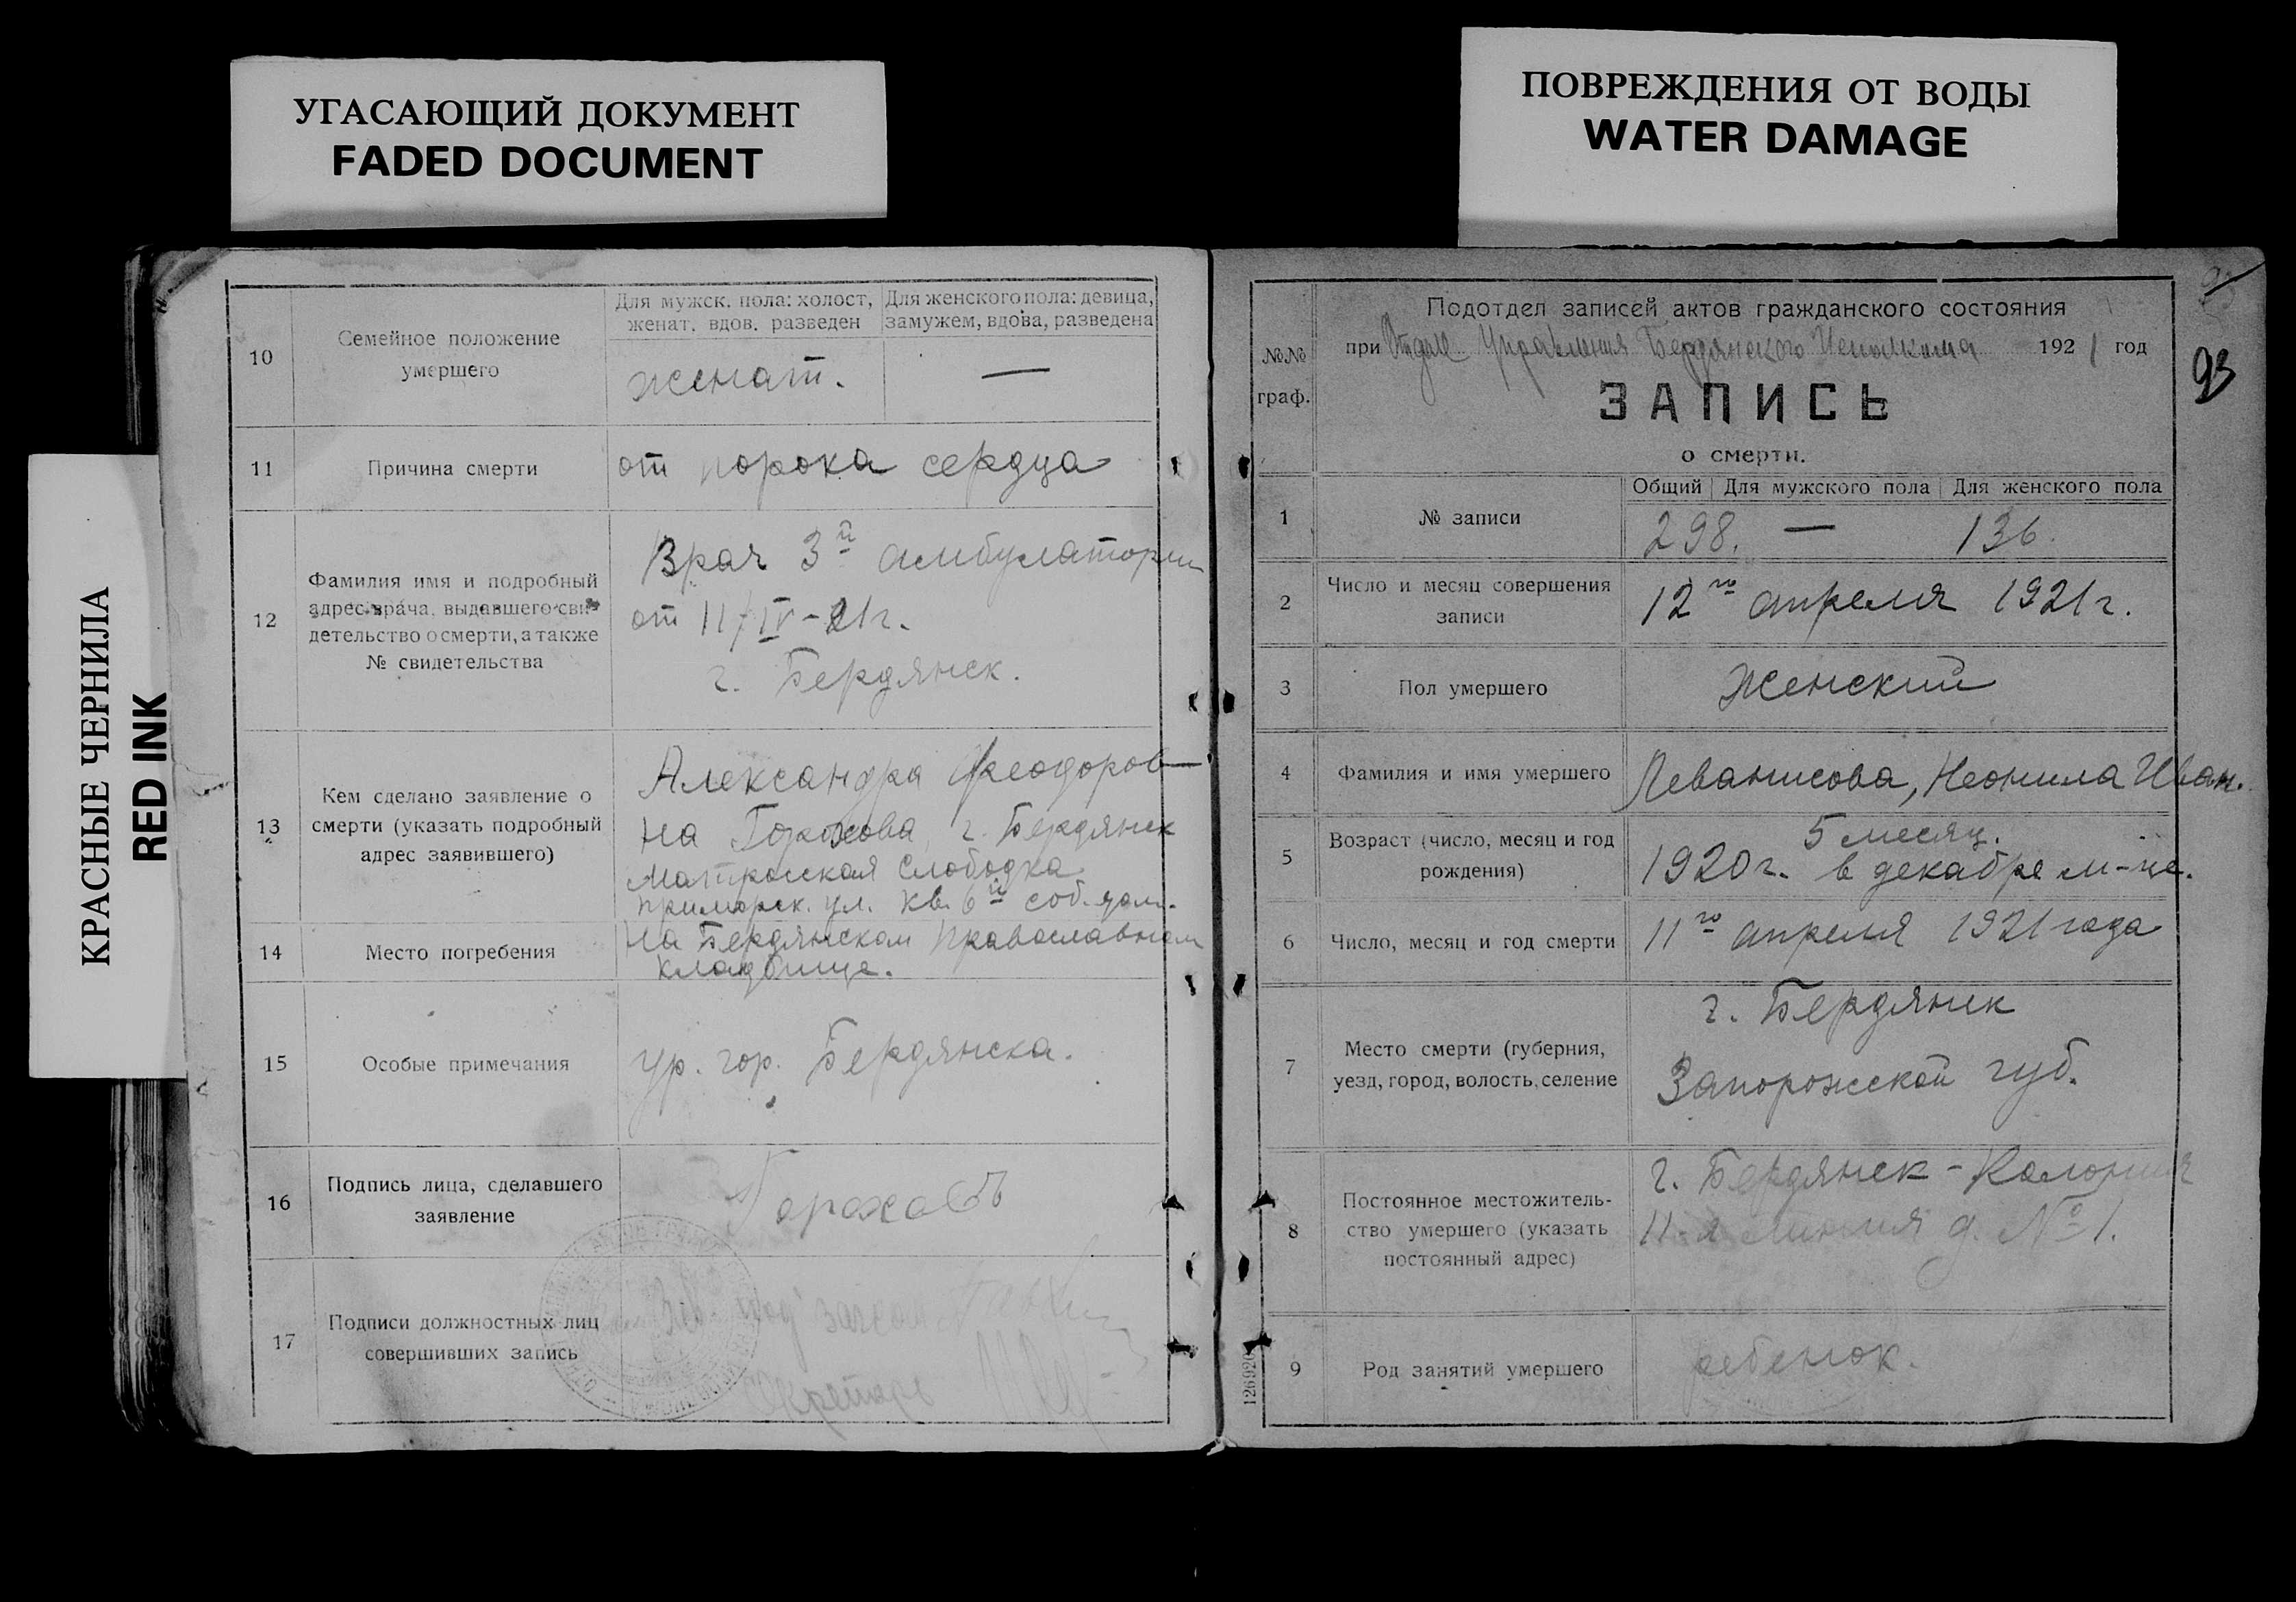 УГАСАЮЩИЙ ДОКУМЕНТ
FADED DOCUMENT
ПОВРЕЖДЕНИЯ ОТ ВОДЫ
WATER DAMAGE
КРАСНЫЕ ЧЕРНИЛА
RED INK
10
Семейное положение
умершего
Для мужск. пола: холост,
женат, вдов, разведен
Для женского пола: девица,
замужем, вдова, разведена
женат.
—
11
Причина смерти
от порока сердца
12
Фамилия имя и подробный
адрес врача, выдавшего сви-
детельство о смерти, а также
№ свидетельства
Врач 3й амбулатории
от 11/IV-21г.
г. Бердянск.
13
Кем сделано заявление о
смерти (указать подробный
адрес заявившего)
Александра Феодоров—
на Горохова, г. Бердянск
Матросская Слободка
Приморск. ул. кв. 6й соб. дом.
14
Место погребения
На Бердянском Православном
кладбище.
15
Особые примечания
ур. гор. Бердянска.
16
Подпись лица, сделавшего
заявление
Гороховъ
17
Подписи должностных лиц
совершивших запись
Зав. под
Секретарь
93
№№
граф.
Подотдел записей актов гражданского состояния
при Отделе Управления Бердянского Исполкома 1921 год
ЗАПИСЬ
о смерти.
1
№ записи
Общий Для мужского пола Для женского пола
298. — 136.
2
Число и месяц совершения
записи
12го апреля 1921г.
3
Пол умершего
Женский
4
Фамилия и имя умершего
Леванисова, Неонила Иван.
5
Возраст (число, месяц и год
рождения)
5 месяц.
1920г. в декабре м-це.
6
Число, месяц и год смерти
11го апреля 1921 года
7
Место смерти (губерния,
уезд, город, волость, селение
г. Бердянск
Запорожской губ.
8
Постоянное местожитель-
ство умершего (указать
постоянный адрес)
г. Бердянск-Колония
11-я линия д. № 1.
9
Род занятий умершего
ребенок.
126920